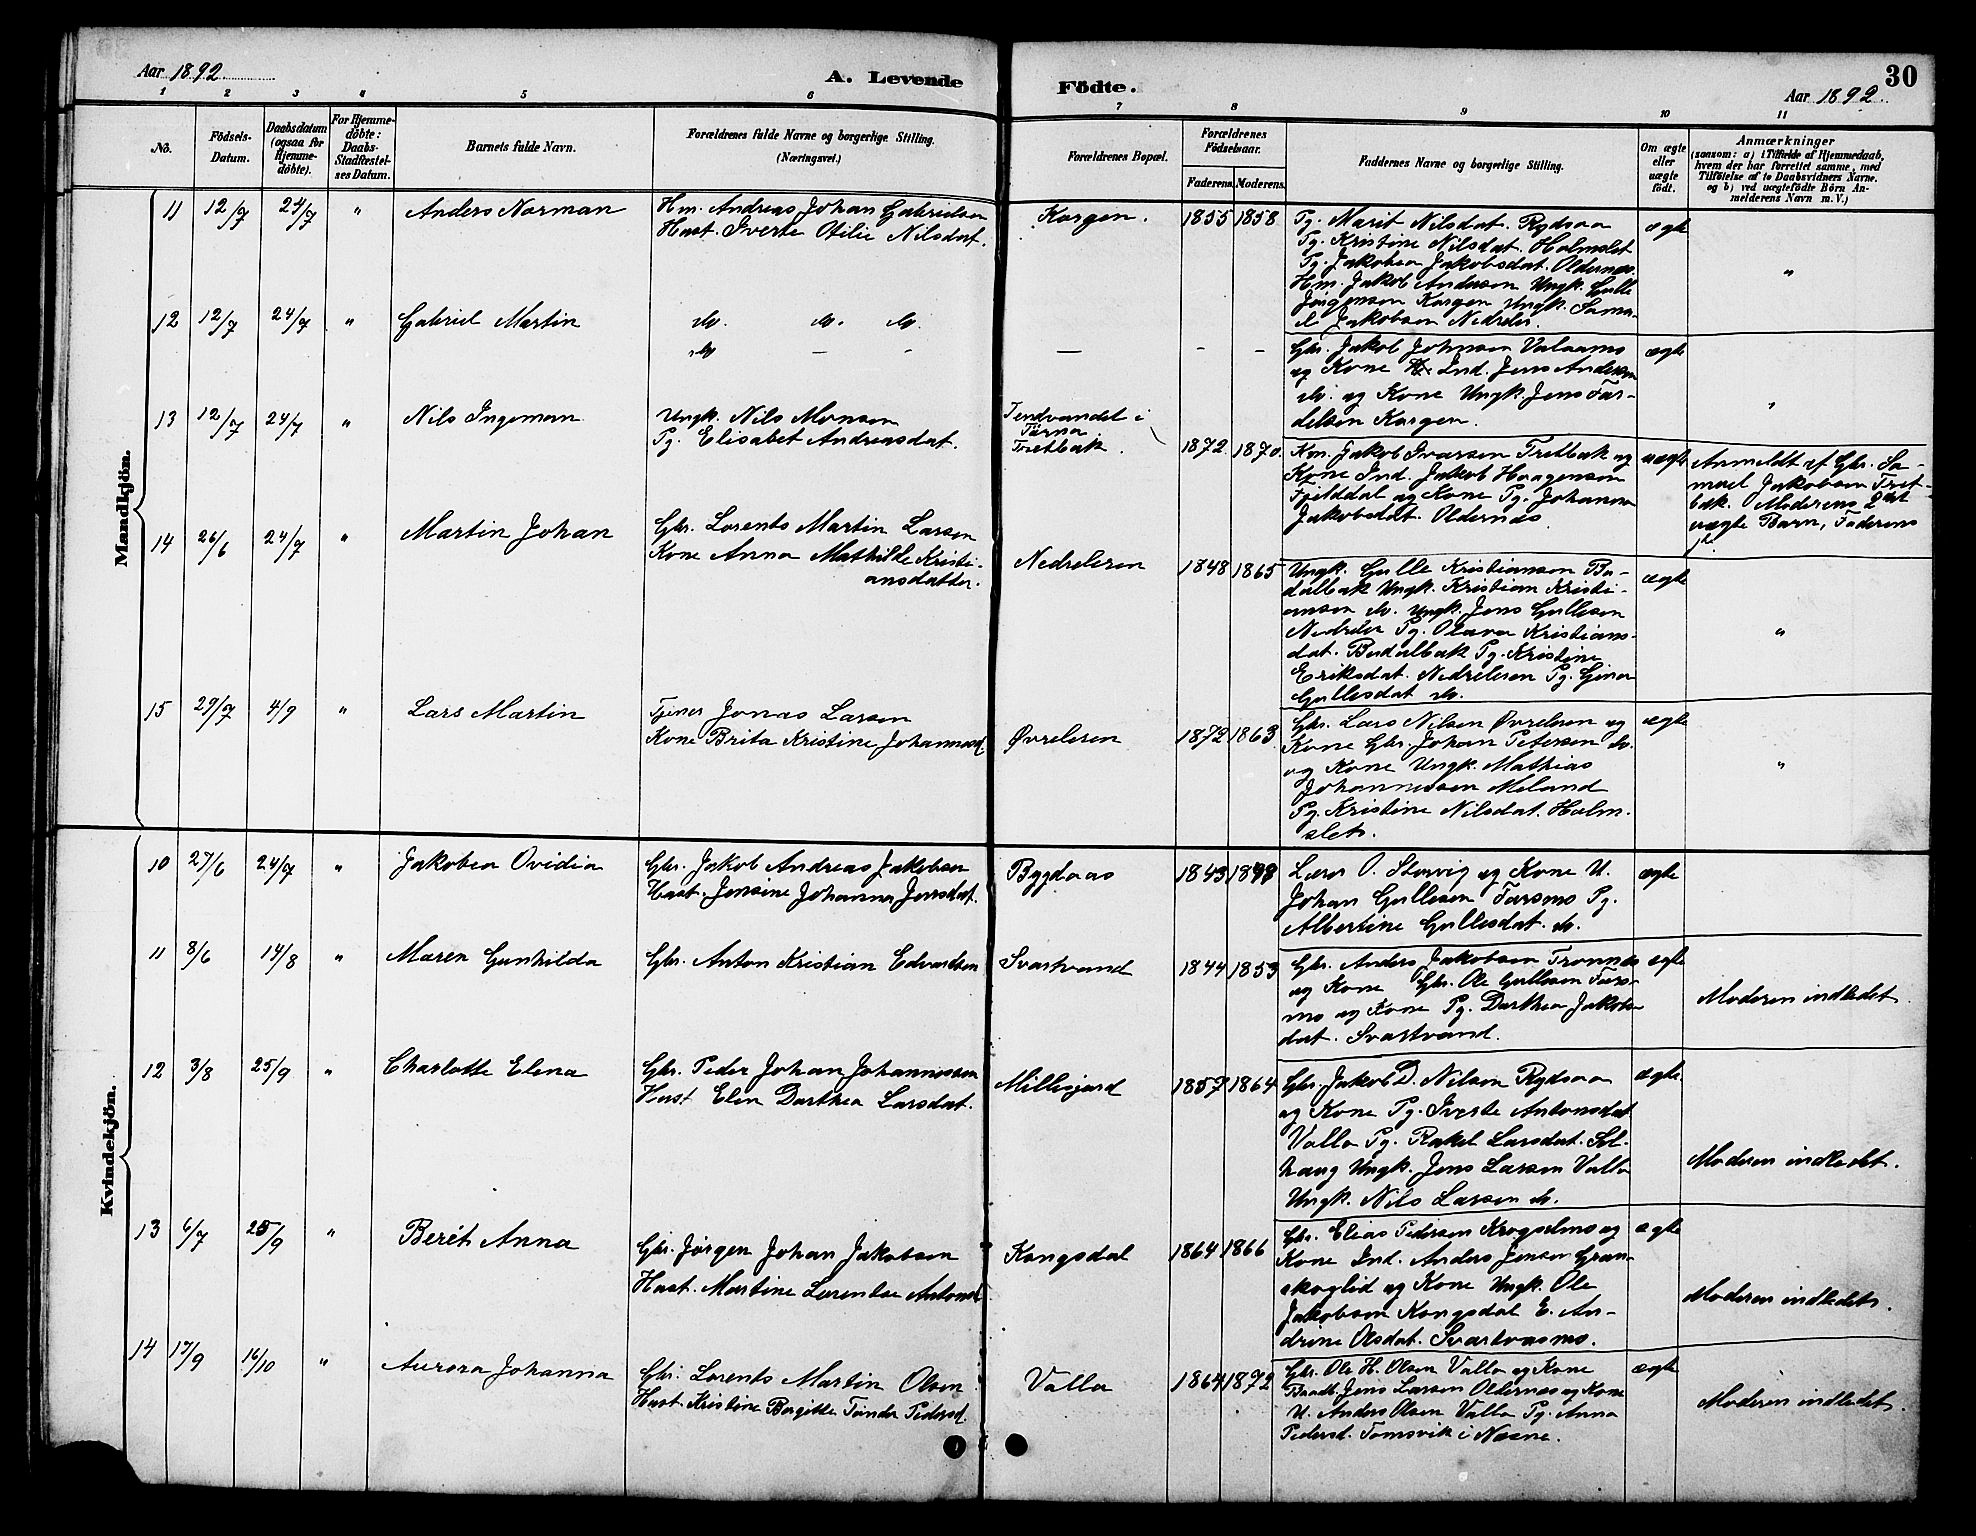 Aar 1892
A. Levende
Födte.
30
Aar 1892
1 2 3 4 5 6 7 8 9 10 11
No.
Födsels-Datum.
Daabsdatum (ogsaa for Hjemme-döbte).
For Hjemme-döbte: Daabs-Stadfæstel-ses Datum.
Barnets fulde Navn.
Forældrenes fulde Navne og borgerlige Stilling. (Næringsvei.)
Forældrenes Bopæl.
Forældrenes Födselsaar.
Faderens. Moderens.
Faddernes Navne og borgerlige Stilling.
Om ægte eller uægte födt.
Anmærkninger
(saasom: a) i Tilfælde af Hjemmedaab,
hvem der har forrettet samme, med
Tilföielse af to Daabsvidners Navne.
og b) ved uægtefödte Börn An-
melderens Navn m. V.)
Mandkjön.
11 12/7 24/7 " Anders Norman
Hm. Andreas Johan Gabrielsen
Hust. Sverte Otilie Nilsdat.
Korgen. 1855 1858
Pg. Marit Nilsdat. Rydsaa
Pg. Kristine Nilsdat. Holmslet
Pg. Jakobea Jakobsdat. Oldernes.
Hm. Jakob Andersen Ungk. Gulle
Jörgensen Korgen Ungk. Samu-
el Jakobsen Nedreler.
ægte "
12 12/7 24/7 " Gabriel Martin
do. do. do.
do — -
— - -
Gbr. Jakob Johnsen Valaamo
og Kone Ind. Jens Andersen
do. og Kone Ungk. Jens Far-
delsen Korgen.
ægte "
13 12/7 24/7 " Nils Ingeman
Ungk. Nils Monsen
Pg. Elisabet Andreasdat.
Tendvandet i
Tärna
Tretbak. 1872 1870
Hm. Jakob Ivarsen Tretbak og
Kone Ind. Jakob Haagensen
Fjelddal og Kone Pg. Johanna
Jakobsdat. Oldernes.
uægte
Anmeldt af Gbr. Sa-
muel Jakobsen Tret-
bak. Moderens 2det
uægte Barn, Faderens
1ste
14 26/6 24/7 " Martin Johan
Gbr. Lorents Martin Larsen
Kone Anna Mathilde Kristi-
ansdatter.
Nedreleren 1848 1865
Ungk. Gulle Kristiansen Bu-
dalbak Ungk. Kristian Kristi-
ansen do. Ungk. Jens Gullesen
Nedreler Pg. Olava Kristians-
dat. Budalbak Pg. Kristine
Eriksdat. Nedreleren Pg. Gina
Gullesdat do.
ægte "
15 29/7 4/9 " Lars Martin
Tjener Jonas Larsen
Kone Brita Kristine Johannesd.
Øvreleren 1872 1863
Gbr. Lars Nilsen Øvreleren og
Kone Gbr. Johan Petersen do.
og Kone Ungk. Mathias
Johannessen Meland
Pg. Kristine Nilsdat. Holm-
slet.
ægte "
Kvindekjön.
10 27/6 24/7 " Jakobea Ovidia
Gbr. Jakob Andreas Jakobsen
Hust. Jensine Johanna Jensdat.
Bygdaas 1843
Lærer O. Storvig og Kone U.
Johan Gullesen Forsmo Pg.
Albertine Gullesdat. do.
ægte
11 8/6 14/8 " Maren Gunhilda
Gbr. Anton Kristian Edvardsen
Svartvand 1844 1853
Gbr. Anders Jakobsen Tronnes
og Kone Gbr. Ole Gullesen Fors-
mo og Kone Pg. Dorthea Jakobs-
dat. Svartvand.
ægte
Moderen indledet.
12 3/8 25/9 " Charlotte Elena
Gbr. Peder Johan Johannessen
Hust Elen Dorthea Larsdat.
Millesjord 1857 1864
Gbr. Jakob D. Nilsen Rydsaa
og Kone Pg. Sverte Antonsdat
Valla Pg. Rakel Larsdat. Sol-
haug Ungk. Jens Larsen Valla
Ungk. Nils Larsen do.
ægte
Moderen indledet.
13 6/7 25/9 " Berét Anna
Gbr. Jørgen Johan Jakobsen
Hust. Martine Lorentse Antonsd
Kongsdal 1864 1866
Gbr. Elias Pedersen Krogselmo og
Kone Ind. Anders Jensen Gran-
skoglid og Kone Ungk. Ole
Jakobsen Kongsdal E. An-
drine Olsdat. Svartvasmo.
ægte
Moderen indledet.
14 17/9 16/10 " Aurora Johanna
Gbr. Lorents Martin Olsen
Hust. Kristine Bergitte Tønder Pedersd.
Valla 1864 1872
Gbr. Ole H. Olsen Valla og Kone
Jens Larsen Oldernes og Kone
U. Anders Olsen Valla Pg. Anna
Pedersd. Tomsvik i Næsne.
ægte
Moderen indledet.